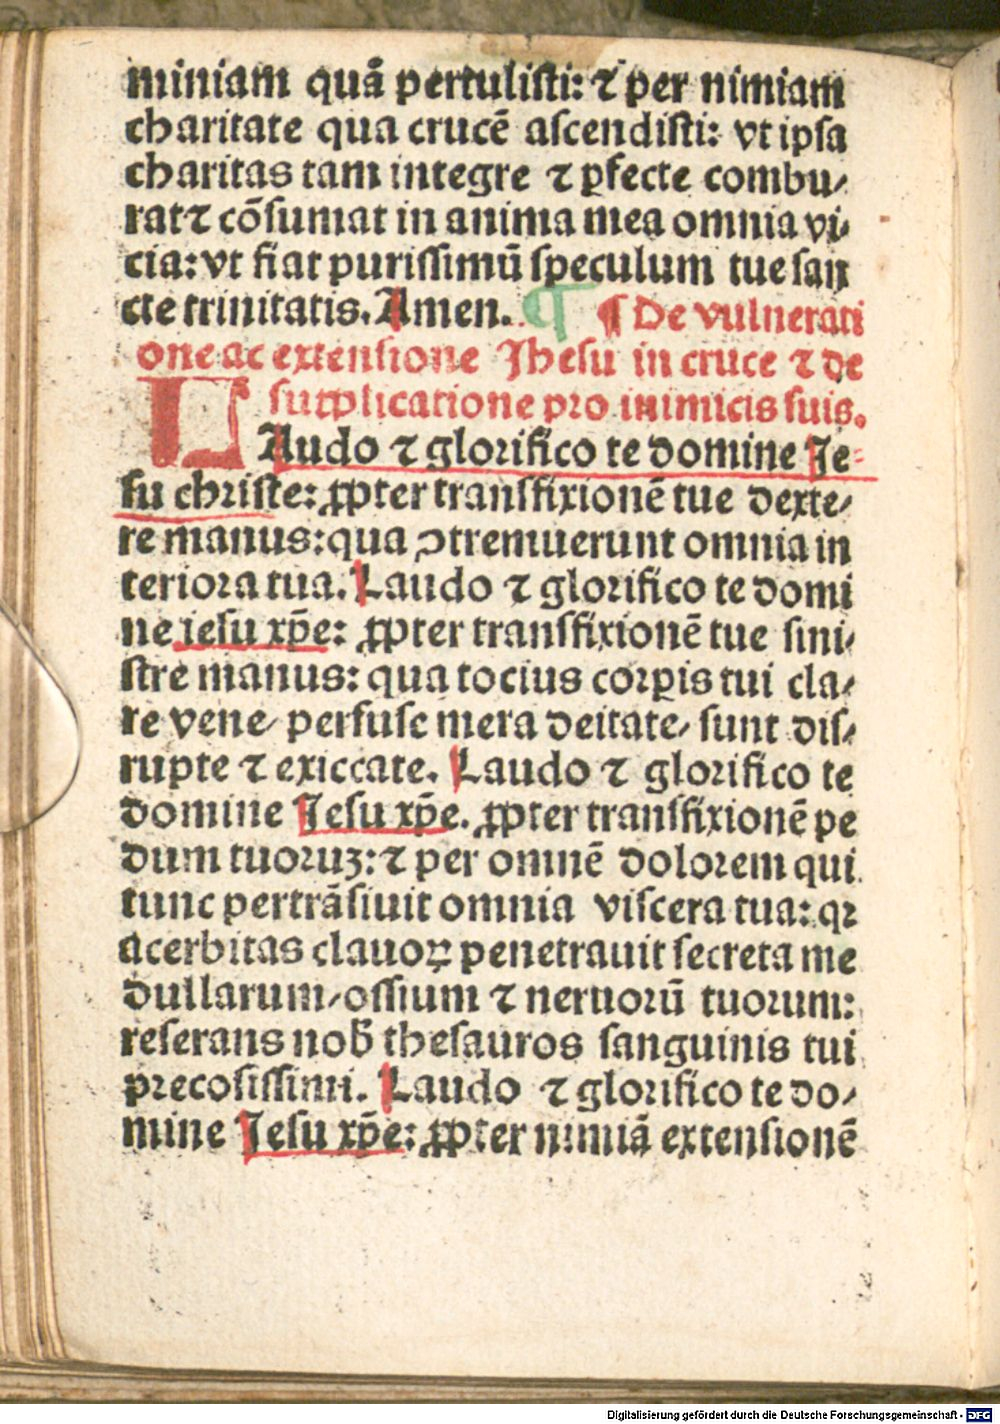 miniam quā pertulisti: ⁊ per nimiam
charitate qua crucē ascendisti: vt ipsa
charitas tam integre ⁊ ꝑfecte combu⸗
rat⁊ cōsumat in anima mea omnia vi⸗
cia: vt fiat purissimū speculum tue san
cte trinitatis. Amen. ¶ ¶ De vulnerati
one ac extensione Jhesu in cruce ⁊ de
supplicatione pro inimicis suis.
LAudo ⁊ glorifico te domine Je⸗
su christe: ꝓpter transfixionē tue dexte⸗
re manus: qua ꝯtremuerunt omnia in
teriora tua. Laudo ⁊ glorifico te domi
ne iesu xp̄e: ꝓpter transfixionē tue sini⸗
stre manus: qua tocius corꝑis tui cla⸗
re vene/ perfuse mera deitate/ sunt dis⸗
rupte ⁊ exiccate. Laudo ⁊ glorifico te
domine Jesu xp̄e. ꝓpter transfixionē pe
dum tuoruꝫ: ⁊ per omnē dolorem qui
tunc pertrāsiuit omnia viscera tua: qꝛ
acerbitas clauoꝝ penetrauit secreta me
dullarum/ ossium ⁊ neruorū tuorum:
reserans nob̄ thesauros sanguinis tui
precosissimi. Laudo ⁊ glorifico te do⸗
mine Jesu xp̄e: ꝓpter nimiā extensionē
Digitalisierung gefördert durch die Deutsche Forschungsgemeinschaft - DFG